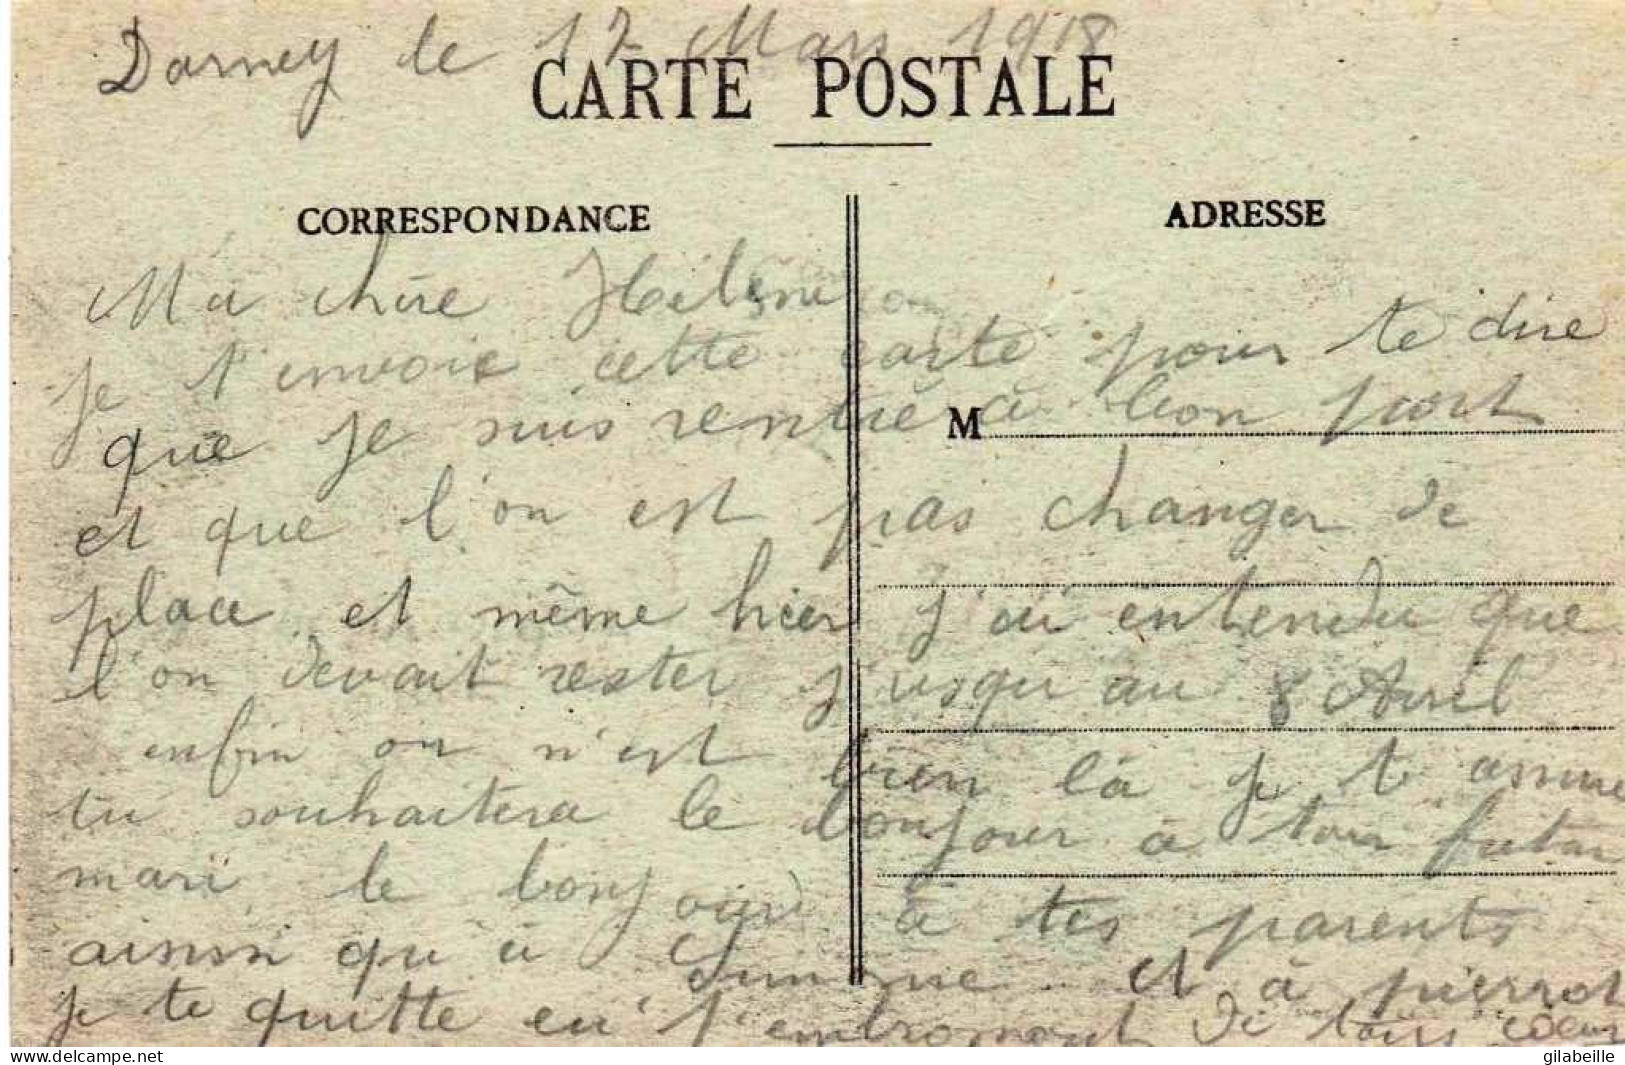 Darney le 17 Mars 1918
CARTE POSTALE
CORRESPONDANCE
ADRESSE
Ma chère Hélène
je t'envoie cette carte pour te dire
que je suis rentré à bon port
M
et que l'on est pas changer de
place et même hier j'ai entendu que
l'on devait rester jusqu au 8 Avril
enfin on n'est bien là je t assure
tu souhaitera le bonjour à ton futur
mari le bonjour à tes parents
ainssi qu à Simone et à pierrot
je te quitte en t'embrassant de tous coeur
gilabeille